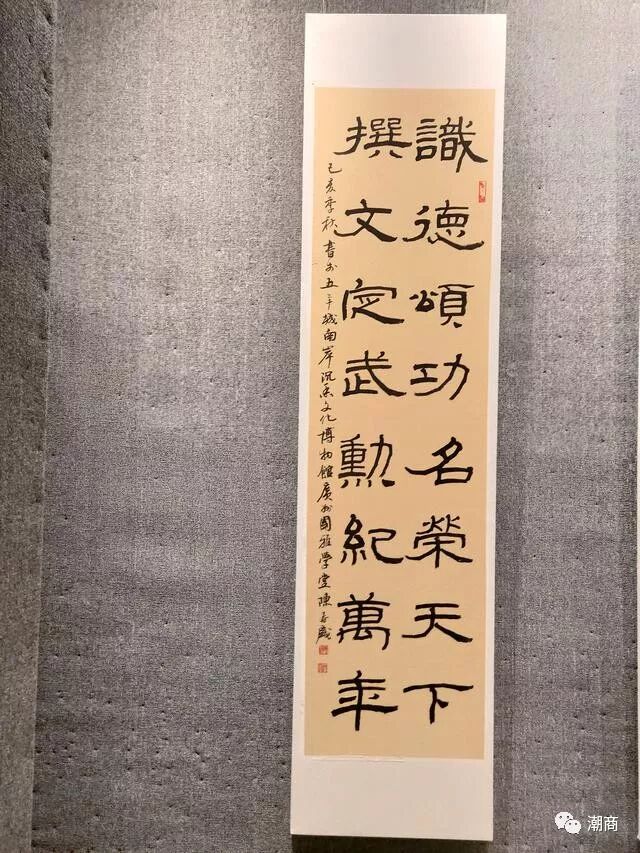 識德頌功名榮天下
撰文定武勳紀萬年
己亥季秋書於五羊城南岸沉香文化博物館廣州國雅學堂陳
潮商